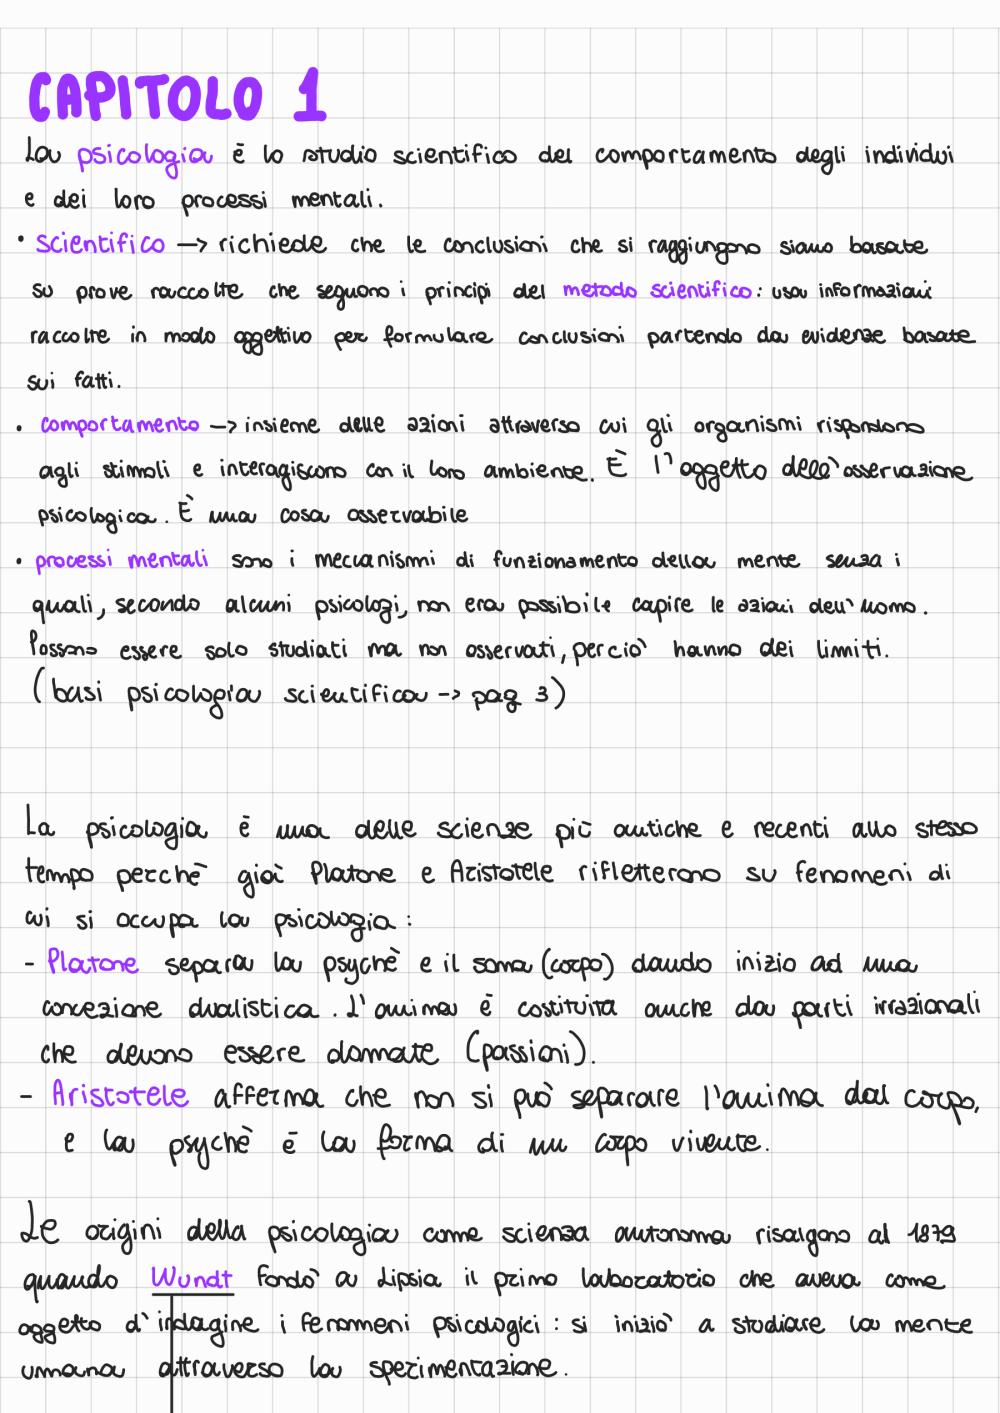 CAPITOLO 1
La psicologia è lo studio scientifico del comportamento degli individui
e dei loro processi mentali.
• scientifico —> richiede che le conclusioni che si raggiungono siano basate
su prove raccolte che seguono i principi del metodo scientifico: usa informazioni
raccolte in modo oggettivo per formulare conclusioni partendo da evidenze basate
sui fatti.
• comportamento —> insieme delle azioni attraverso cui gli organismi rispondono
agli stimoli e interagiscono con il loro ambiente. È l'oggetto delle' osservazione
psicologica. È una cosa osservabile
• processi mentali sono i meccanismi di funzionamento della mente senza i
quali, secondo alcuni psicologi, non era possibile capire le azioni dell'uomo.
Possono essere solo studiati ma non osservati, perciò hanno dei limiti.
(basi psicologia scientifica -> pag 3)
La psicologia è una delle scienze più antiche e recenti allo stesso
tempo perchè già Platone e Aristotele rifletterono su fenomeni di
cui si occupa la psicologia:
- Platone separa la psychè e il soma (corpo) dando inizio ad una
concezione dualistica. L'anima è costituita anche da parti irrazionali
che devono essere domate (passioni).
- Aristotele afferma che non si può separare l'anima dal corpo,
e la psychè è la forma di un corpo vivente.
Le origini della psicologia come scienza autonoma risalgono al 1879
quando Wundt fondò a Lipsia il primo laboratorio che aveva come
oggetto d'indagine i fenomeni psicologici: si iniziò a studiare la mente
umana attraverso la sperimentazione.